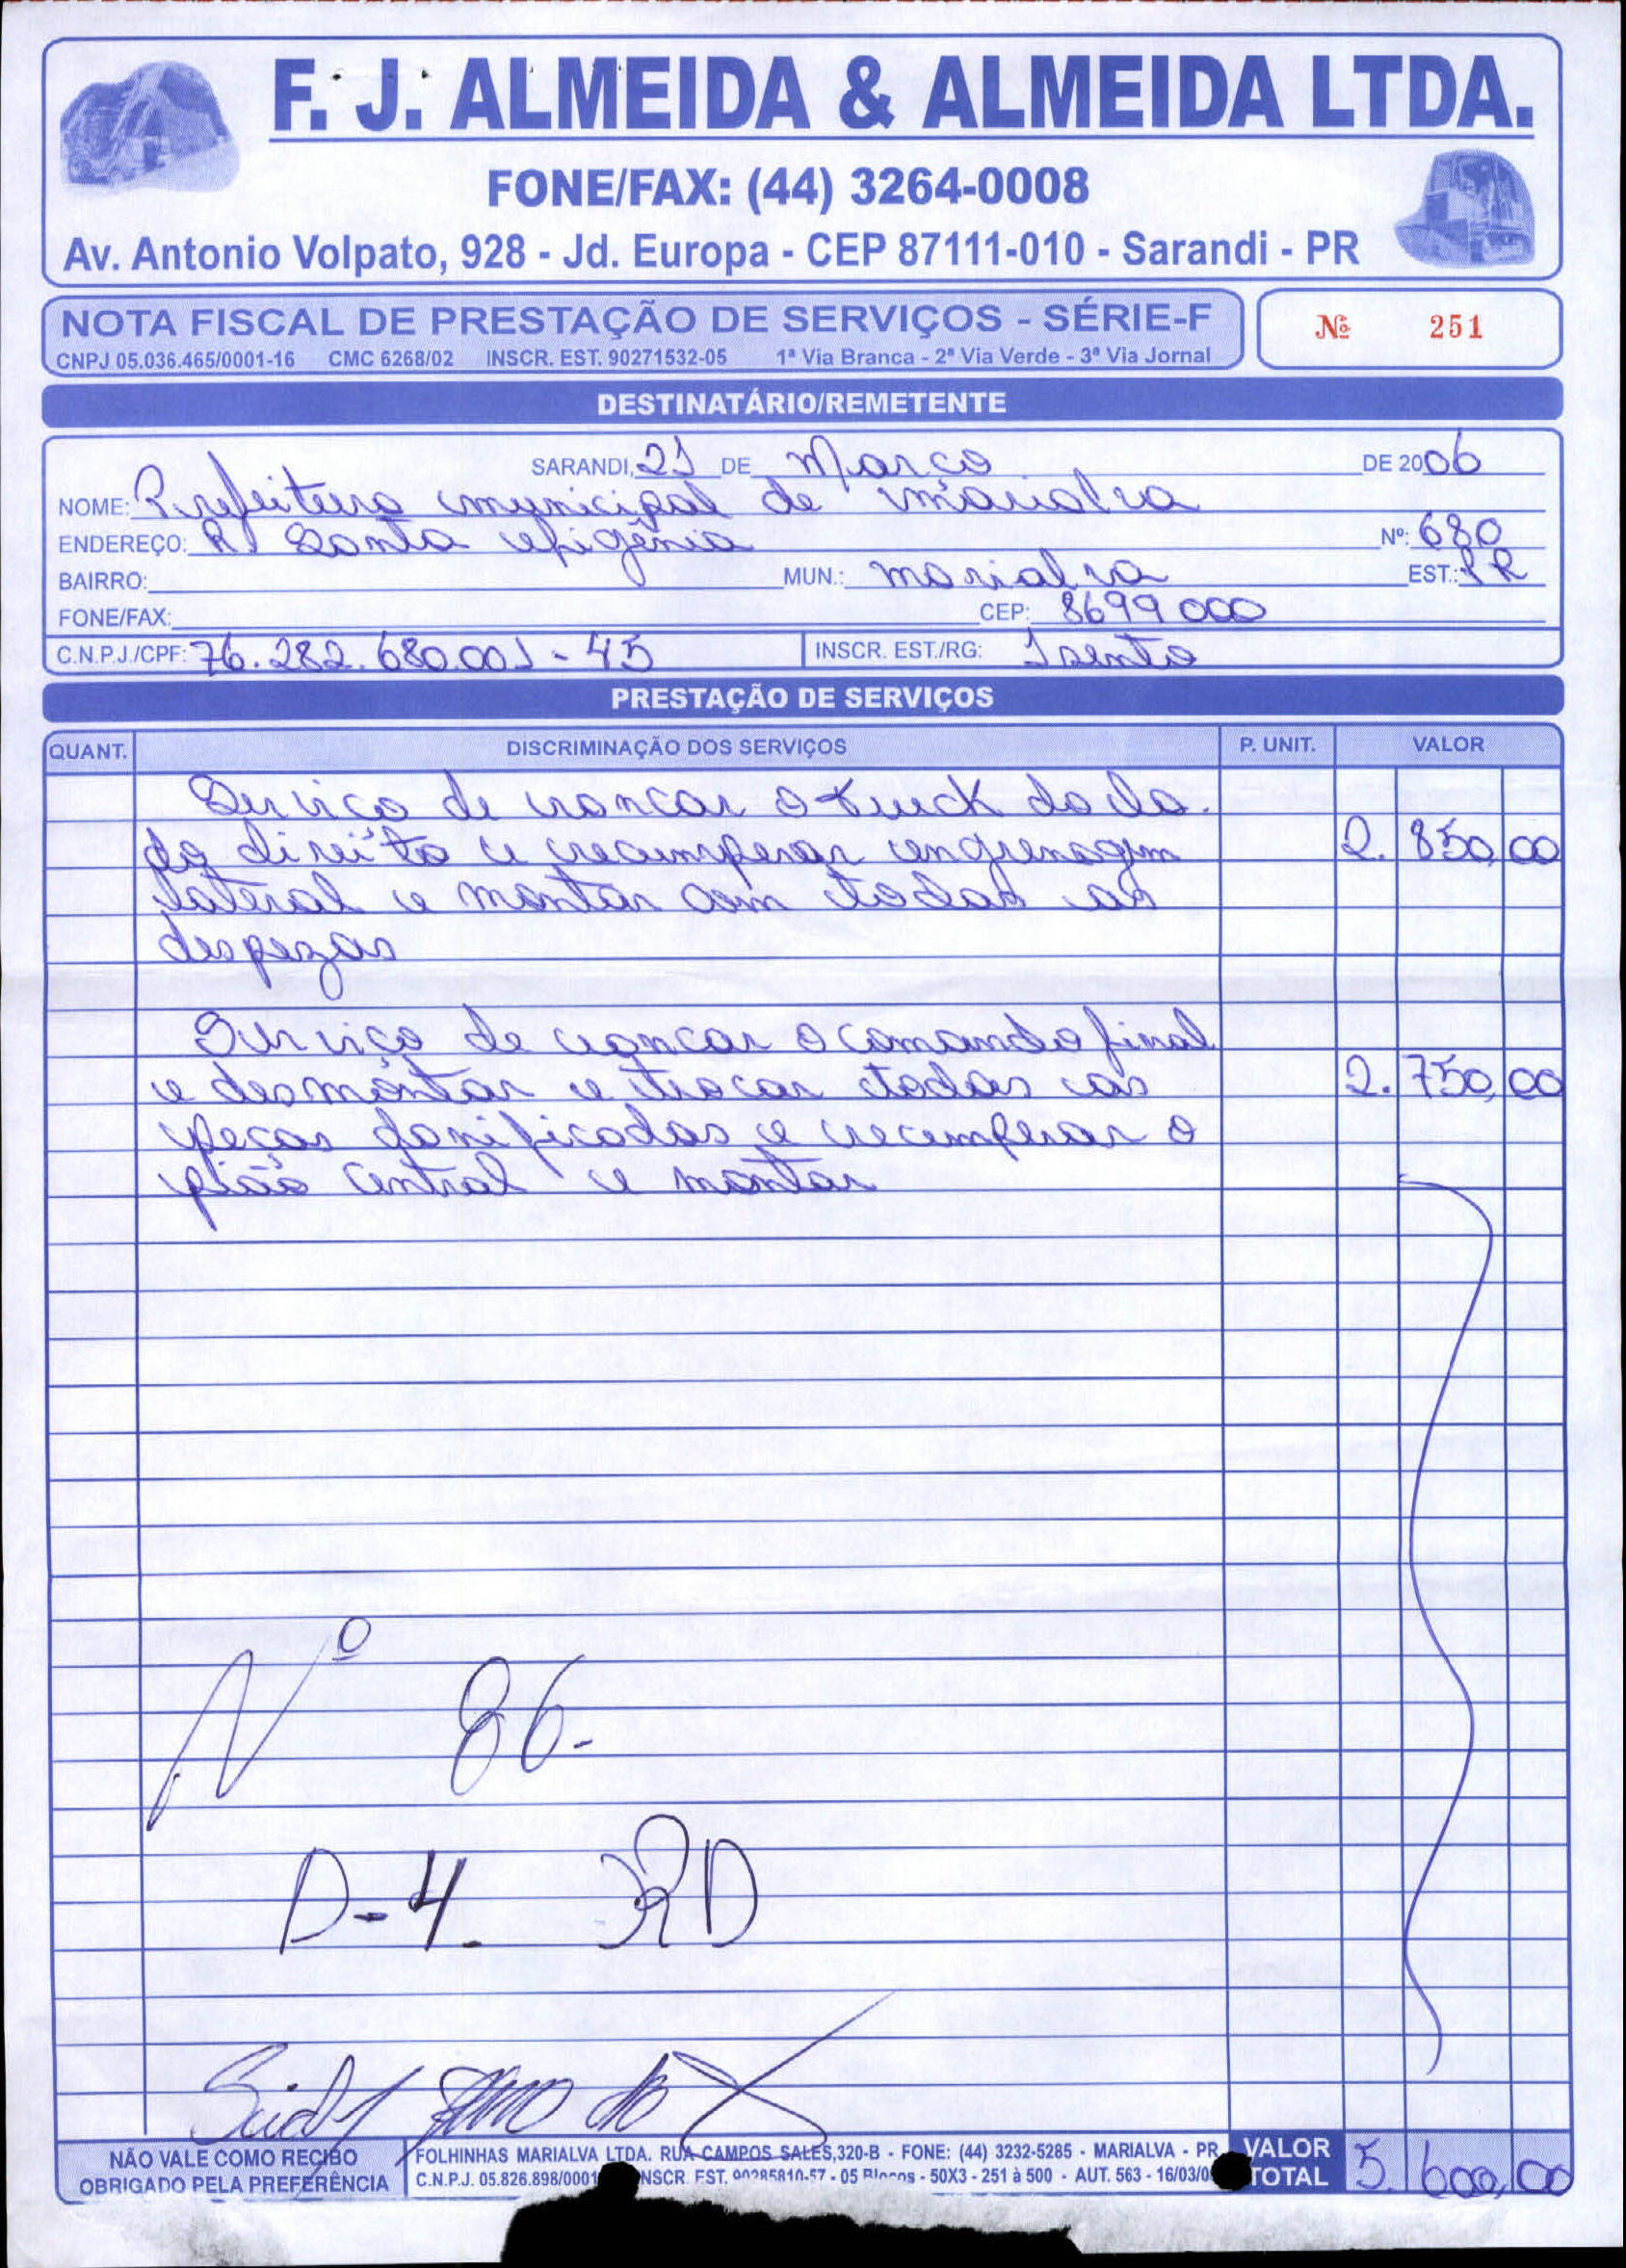 F. J. ALMEIDA & ALMEIDA LTDA.
FONE/FAX: (44) 3264-0008
Av. Antonio Volpato, 928 - Jd. Europa - CEP 87111-010 - Sarandi - PR
NOTA FISCAL DE PRESTAÇÃO DE SERVIÇOS - SÉRIE-F
Nº 251
CNPJ 05.036.465/0001-16 CMC 6268/02 INSCR. EST. 90271532-05 1ª Via Branca - 2ª Via Verde - 3ª Via Jornal
DESTINATÁRIO/REMETENTE
SARANDI, 21 DE Março DE 2006
NOME: Prefeitura municipal de marialva
ENDEREÇO: R Santa efigênia Nº: 680
BAIRRO: MUN.: marialva EST.: PR
FONE/FAX: CEP: 8699 000
C.N.P.J./CPF: 76.282.680.001-45 INSCR. EST./RG: Isento
PRESTAÇÃO DE SERVIÇOS
QUANT. DISCRIMINAÇÃO DOS SERVIÇOS P. UNIT. VALOR
Serviço de rancar o truck do la.
do direito e recumperar engrenagem 2.850,00
lateral e montar com todas as
despezas
Serviço de rancar o comando final
e desmontar e trocar todas as 2.750,00
peças danificadas e recumperar o
pião central e montar
Nº 86.
D-4.
NÃO VALE COMO RECIBO
OBRIGADO PELA PREFERÊNCIA
FOLHINHAS MARIALVA LTDA. RUA CAMPOS SALES,320-B - FONE: (44) 3232-5285 - MARIALVA - PR
C.N.P.J. 05.826.898/0001 INSCR. EST. 90285810-57 - 05 Blocos - 50X3 - 251 à 500 - AUT. 563 - 16/03/0
VALOR TOTAL 5.600,00